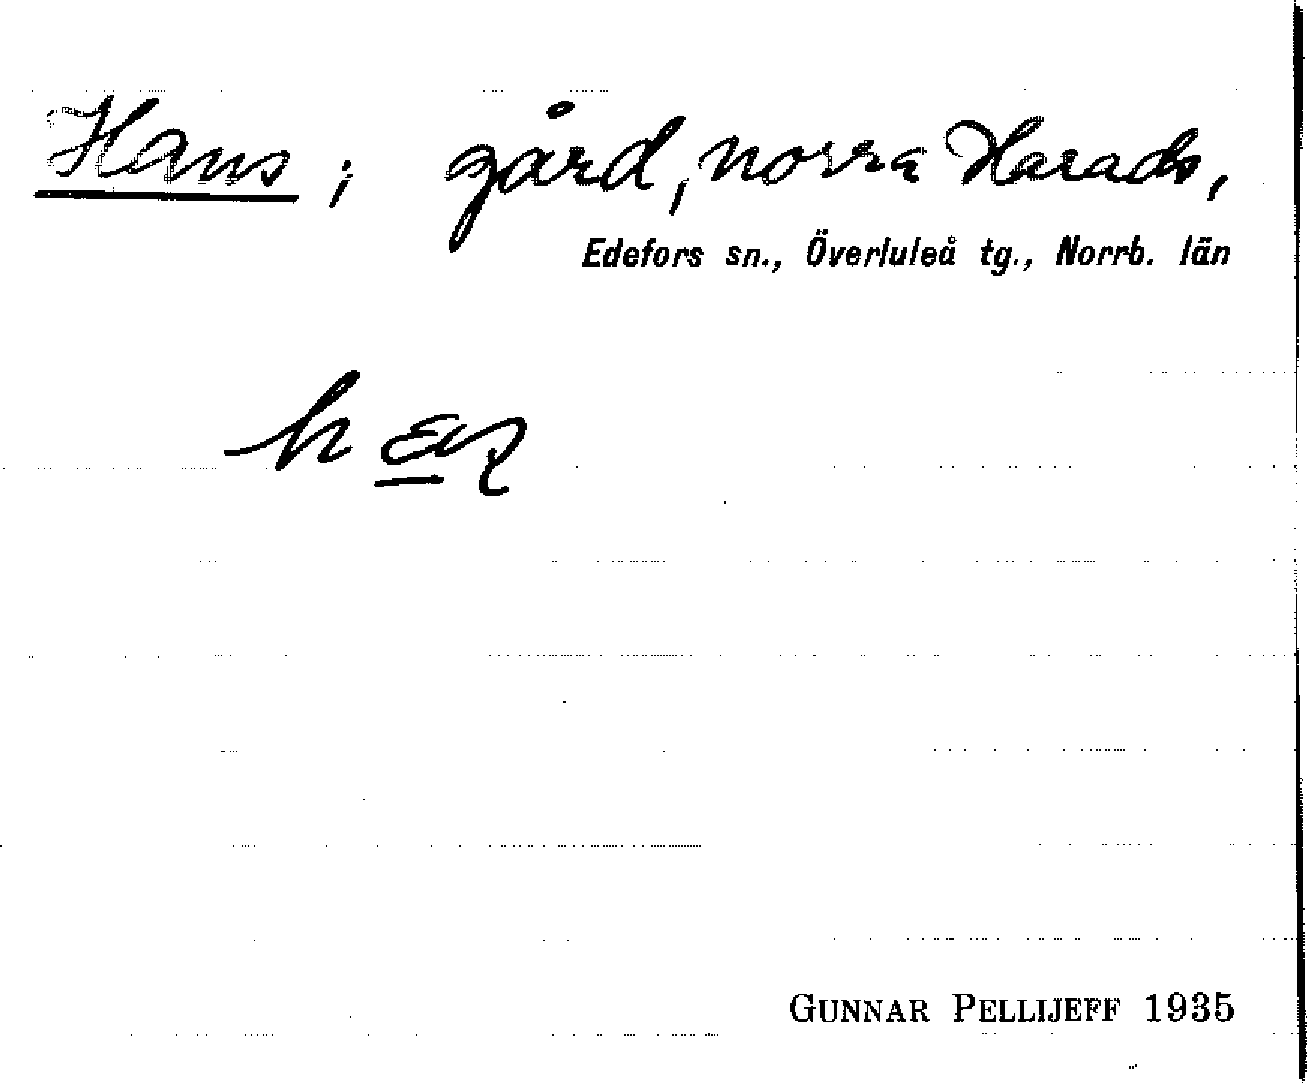 Hans; gård, norra Harads,
Edefors sn., Överluleå tg., Norrb. län
GUNNAR PELLIJEFF 1935